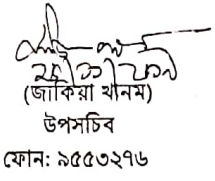 (জাকিয়া খানম)
উপসচিব
ফোন: ৯৫৫৩২৭৬